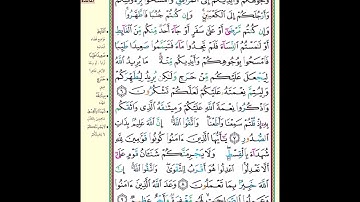 وُجُوهَكُمْ وَأَيْدِيَكُمْ إِلَى الْمَرَافِقِ وَامْسَحُوا بِرُءُوسِكُمْ
وَأَرْجُلَكُمْ إِلَى الْكَعْبَيْنِ وَإِن كُنتُمْ جُنُبًا فَاطَّهَّرُوا
وَإِن كُنتُم مَّرْضَىٰ أَوْ عَلَىٰ سَفَرٍ أَوْ جَاءَ أَحَدٌ مِّنكُم مِّنَ الْغَائِطِ
أَوْ لَامَسْتُمُ النِّسَاءَ فَلَمْ تَجِدُوا مَاءً فَتَيَمَّمُوا صَعِيدًا طَيِّبًا
فَامْسَحُوا بِوُجُوهِكُمْ وَأَيْدِيكُم مِّنْهُ مَا يُرِيدُ اللَّهُ
لِيَجْعَلَ عَلَيْكُم مِّنْ حَرَجٍ وَلَٰكِن يُرِيدُ لِيُطَهِّرَكُمْ
وَلِيُتِمَّ نِعْمَتَهُ عَلَيْكُمْ لَعَلَّكُمْ تَشْكُرُونَ ٦
وَاذْكُرُوا نِعْمَةَ اللَّهِ عَلَيْكُمْ وَمِيثَاقَهُ الَّذِي وَاثَقَكُم
بِهِ إِذْ قُلْتُمْ سَمِعْنَا وَأَطَعْنَا وَاتَّقُوا اللَّهَ إِنَّ اللَّهَ عَلِيمٌ بِذَاتِ
الصُّدُورِ ٧ يَا أَيُّهَا الَّذِينَ آمَنُوا كُونُوا قَوَّامِينَ لِلَّهِ
شُهَدَاءَ بِالْقِسْطِ وَلَا يَجْرِمَنَّكُمْ شَنَآنُ قَوْمٍ عَلَىٰ
أَلَّا تَعْدِلُوا اعْدِلُوا هُوَ أَقْرَبُ لِلتَّقْوَىٰ وَاتَّقُوا اللَّهَ إِنَّ
اللَّهَ خَبِيرٌ بِمَا تَعْمَلُونَ ٨ وَعَدَ اللَّهُ الَّذِينَ آمَنُوا
وَعَمِلُوا الصَّالِحَاتِ لَهُم مَّغْفِرَةٌ وَأَجْرٌ عَظِيمٌ ٩